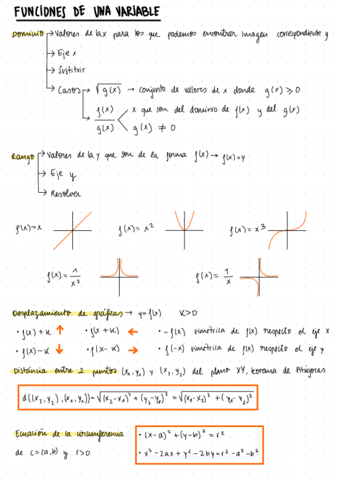 FUNCIONES DE UNA VARIABLE
Dominio → Valores de la x para los que podemos encontrar imagen correspondiente y
→ Eje x
→ Sustituir
→ Casos → √g(x) → conjunto de valores de x donde g(x) ≥ 0
→ f(x)/g(x) < x que son del dominio de f(x) y del g(x)
g(x) ≠ 0
Rango → Valores de la y que son de la forma f(x) → f(x)=y
→ Eje y
→ Resolver
f(x)=x f(x)=x² f(x)=x³
f(x)=1/x² f(x)=1/x
Desplazamiento de gráficas → y=f(x) K>0
• f(x)+K ↑ • f(x+K) ← • -f(x) simétrica de f(x) respecto el eje x
• f(x)-K ↓ • f(x-K) → • f(-x) simétrica de f(x) respecto el eje y
Distancia entre 2 puntos (x₁,y₁) y (x₂,y₂) del plano XY, teorema de Pitágoras
Ecuación de la circunferencia • (x-a)²+(y-b)²=r²
de c=(a,b) y r>0 • x²-2ax+y²-2by=r²-a²-b²